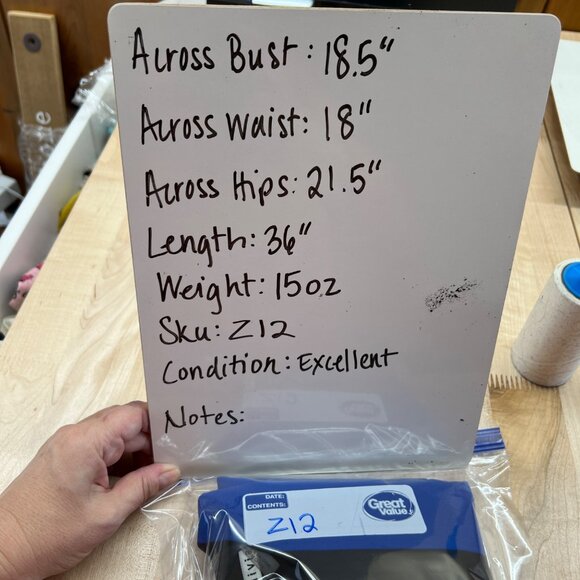 Across Bust: 18.5"
Across Waist: 18"
Across Hips: 21.5"
Length: 36"
Weight: 15oz
Sku: Z12
Condition: Excellent
Notes:
DATE:
CONTENTS:
Z12
Great
Value